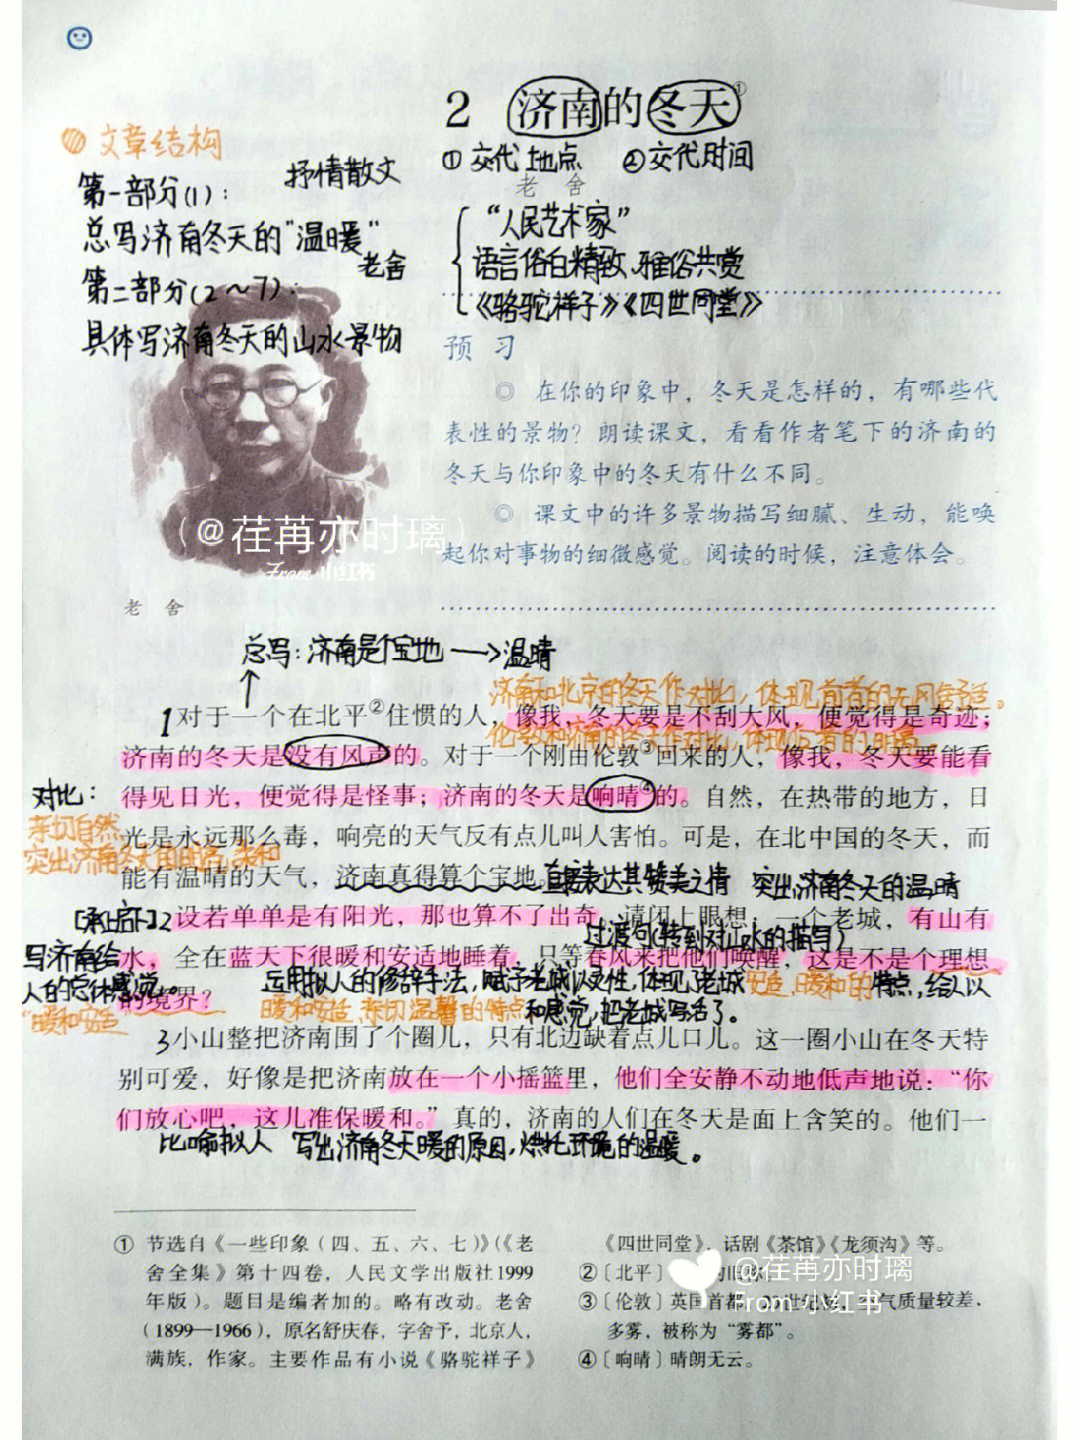 2 济南的冬天①
① 交代地点 ② 交代时间
老 舍
文章结构
抒情散文
第一部分(1):
总写济南冬天的"温暖"
老舍
第二部分(2~7):
具体写济南冬天的山水景物
"人民艺术家"
语言俗白精致、雅俗共赏
《骆驼祥子》《四世同堂》
预 习
◎ 在你的印象中，冬天是怎样的，有哪些代
表性的景物？朗读课文，看看作者笔下的济南的
冬天与你印象中的冬天有什么不同。
◎ 课文中的许多景物描写细腻、生动，能唤
起你对事物的细微感觉。阅读的时候，注意体会。
(@荏苒亦时璃)
From 小红书
老 舍
总写：济南是个宝地→温晴
济南和北京的冬天作对比，体现前者的无风舒适。
1对于一个在北平②住惯的人，像我，冬天要是不刮大风，便觉得是奇迹；
伦敦和济南的冬天作对比，体现后者的明亮
济南的冬天是没有风声的。对于一个刚由伦敦③回来的人，像我，冬天要能看
对比：
得见日光，便觉得是怪事；济南的冬天是响晴④的。自然，在热带的地方，日
亲切自然
光是永远那么毒，响亮的天气反有点儿叫人害怕。可是，在北中国的冬天，而
突出济南冬天的
能有温晴的天气，济南真得算个宝地。
直接表达其赞美之情 突出济南冬天的温晴
[承上启下]
2设若单单是有阳光，那也算不了出奇。请闭上眼想：一个老城，有山有
过渡句(转到对山水的描写)
写济南给
人的总体感觉。
"暖和安适
水，全在蓝天下很暖和安适地睡着，只等春风来把他们唤醒，这是不是个理想
运用拟人的修辞手法，赋予老城以灵性，体现老城安适、暖和的特点，给人以
的境界？
暖和安适、亲切温馨的特点和感觉，把老城写活了。
3小山整把济南围了个圈儿，只有北边缺着点儿口儿。这一圈小山在冬天特
别可爱，好像是把济南放在一个小摇篮里，他们全安静不动地低声地说："你
们放心吧，这儿准保暖和。"真的，济南的人们在冬天是面上含笑的。他们一
比喻拟人 写出济南冬天暖的原因，烘托环境的温暖。
① 节选自《一些印象（四、五、六、七）》（《老
舍全集》第十四卷，人民文学出版社1999
年版）。题目是编者加的。略有改动。老舍
（1899—1966），原名舒庆春，字舍予，北京人，
满族，作家。主要作品有小说《骆驼祥子》
《四世同堂》，话剧《茶馆》《龙须沟》等。
②〔北平〕
③〔伦敦〕英国首都。气质量较差，
多雾，被称为"雾都"。
④〔响晴〕晴朗无云。
@荏苒亦时璃
From 小红书